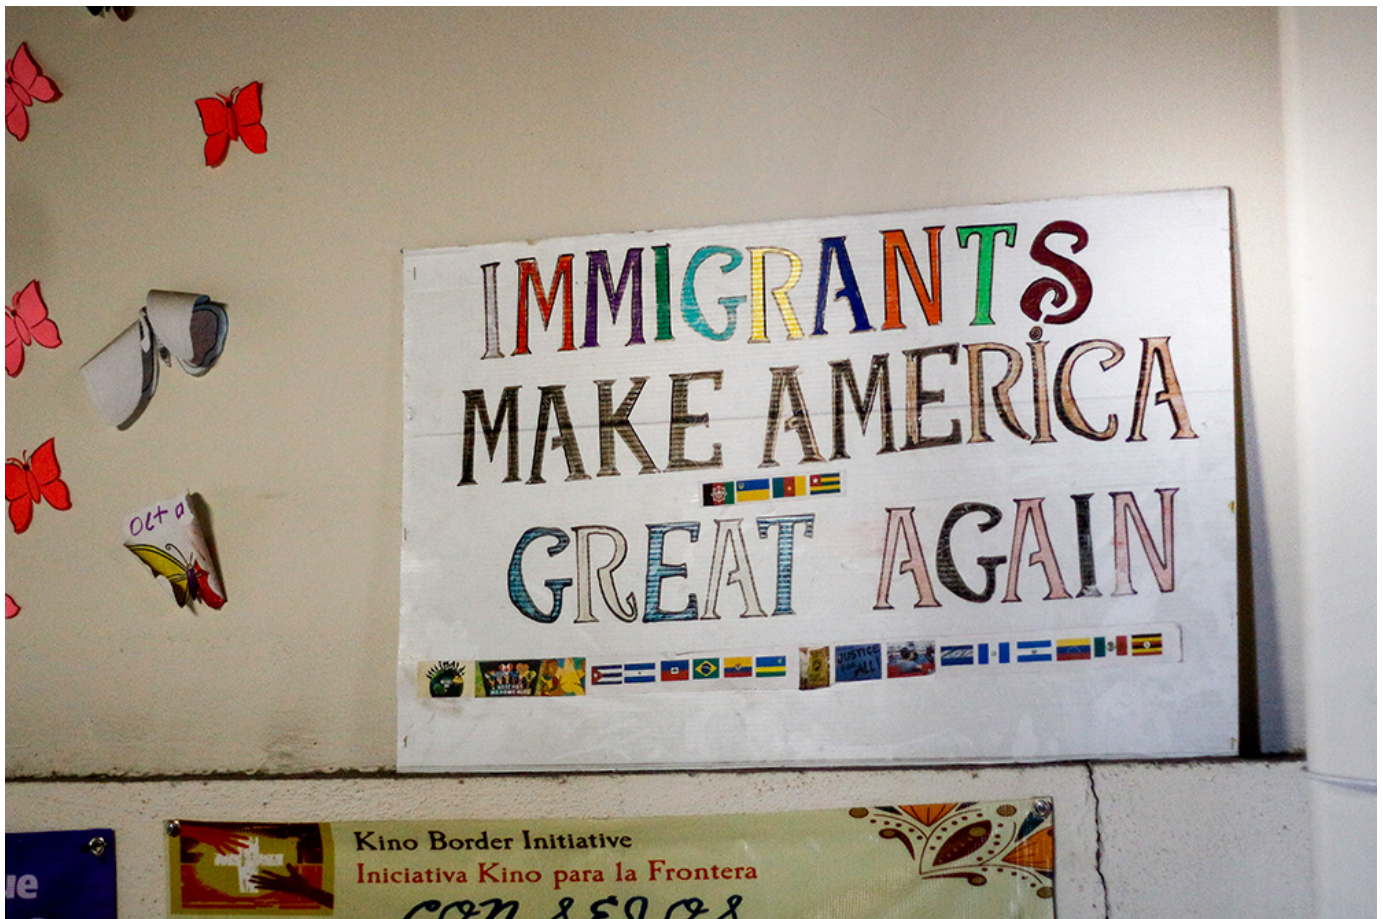 IMMIGRANTS
MAKE AMERICA
GREAT AGAIN
JUSTICE
FOR ALL
Kino Border Initiative
Iniciativa Kino para la Frontera
ue